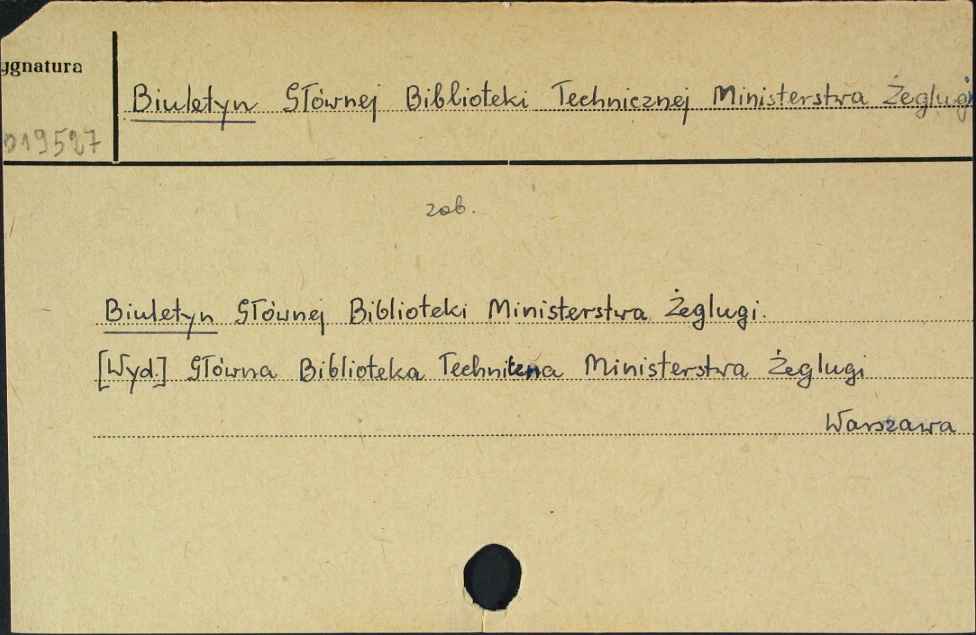 ygnatura
Biuletyn Głównej Biblioteki Technicznej Ministerstwa Żeglugi
019527
zob.
Biuletyn Głównej Biblioteki Ministerstwa Żeglugi.
[Wyd.] Główna Biblioteka Techniczna Ministerstwa Żeglugi
Warszawa